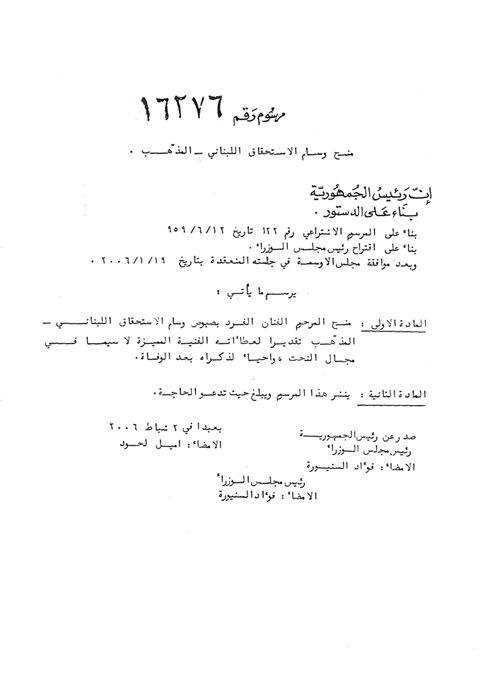 مرسوم رقم ١٦٢٧٦
منح وسام الاستحقاق اللبناني ـ المذهّب .
إنّ رئيس الجمهورية
بناء على الدستور .
بناء على المرسم الاشتراعي رقم ١٢٢ تاريخ ٩٥٩/٦/١٢
بناء على اقتراح رئيس مجلس الوزراء .
وبعد موافقة مجلس الاوسمة في جلسته المنعقدة بتاريخ ٢٠٠٦/١/١٩ .
يرسم ما يأتي :
المادة الاولى : منح المرحم الفنان الفرد بصبوص وسام الاستحقاق اللبناني ـ
المذهّب تقديرا لعطاءاته الفنية المميزة لا سيما في
مجال النحت واحياء لذكراه بعد الوفاة.
المادة الثانية : ينشر هذا المرسم ويبلغ حيث تدعو الحاجة.
بعبدا في ٢ شباط ٢٠٠٦
الامضاء : اميل لحود
صدر عن رئيس الجمهورية
رئيس مجلس الوزراء
الامضاء : فؤاد السنيورة
رئيس مجلس الوزراء
الامضاء : فؤاد السنيورة